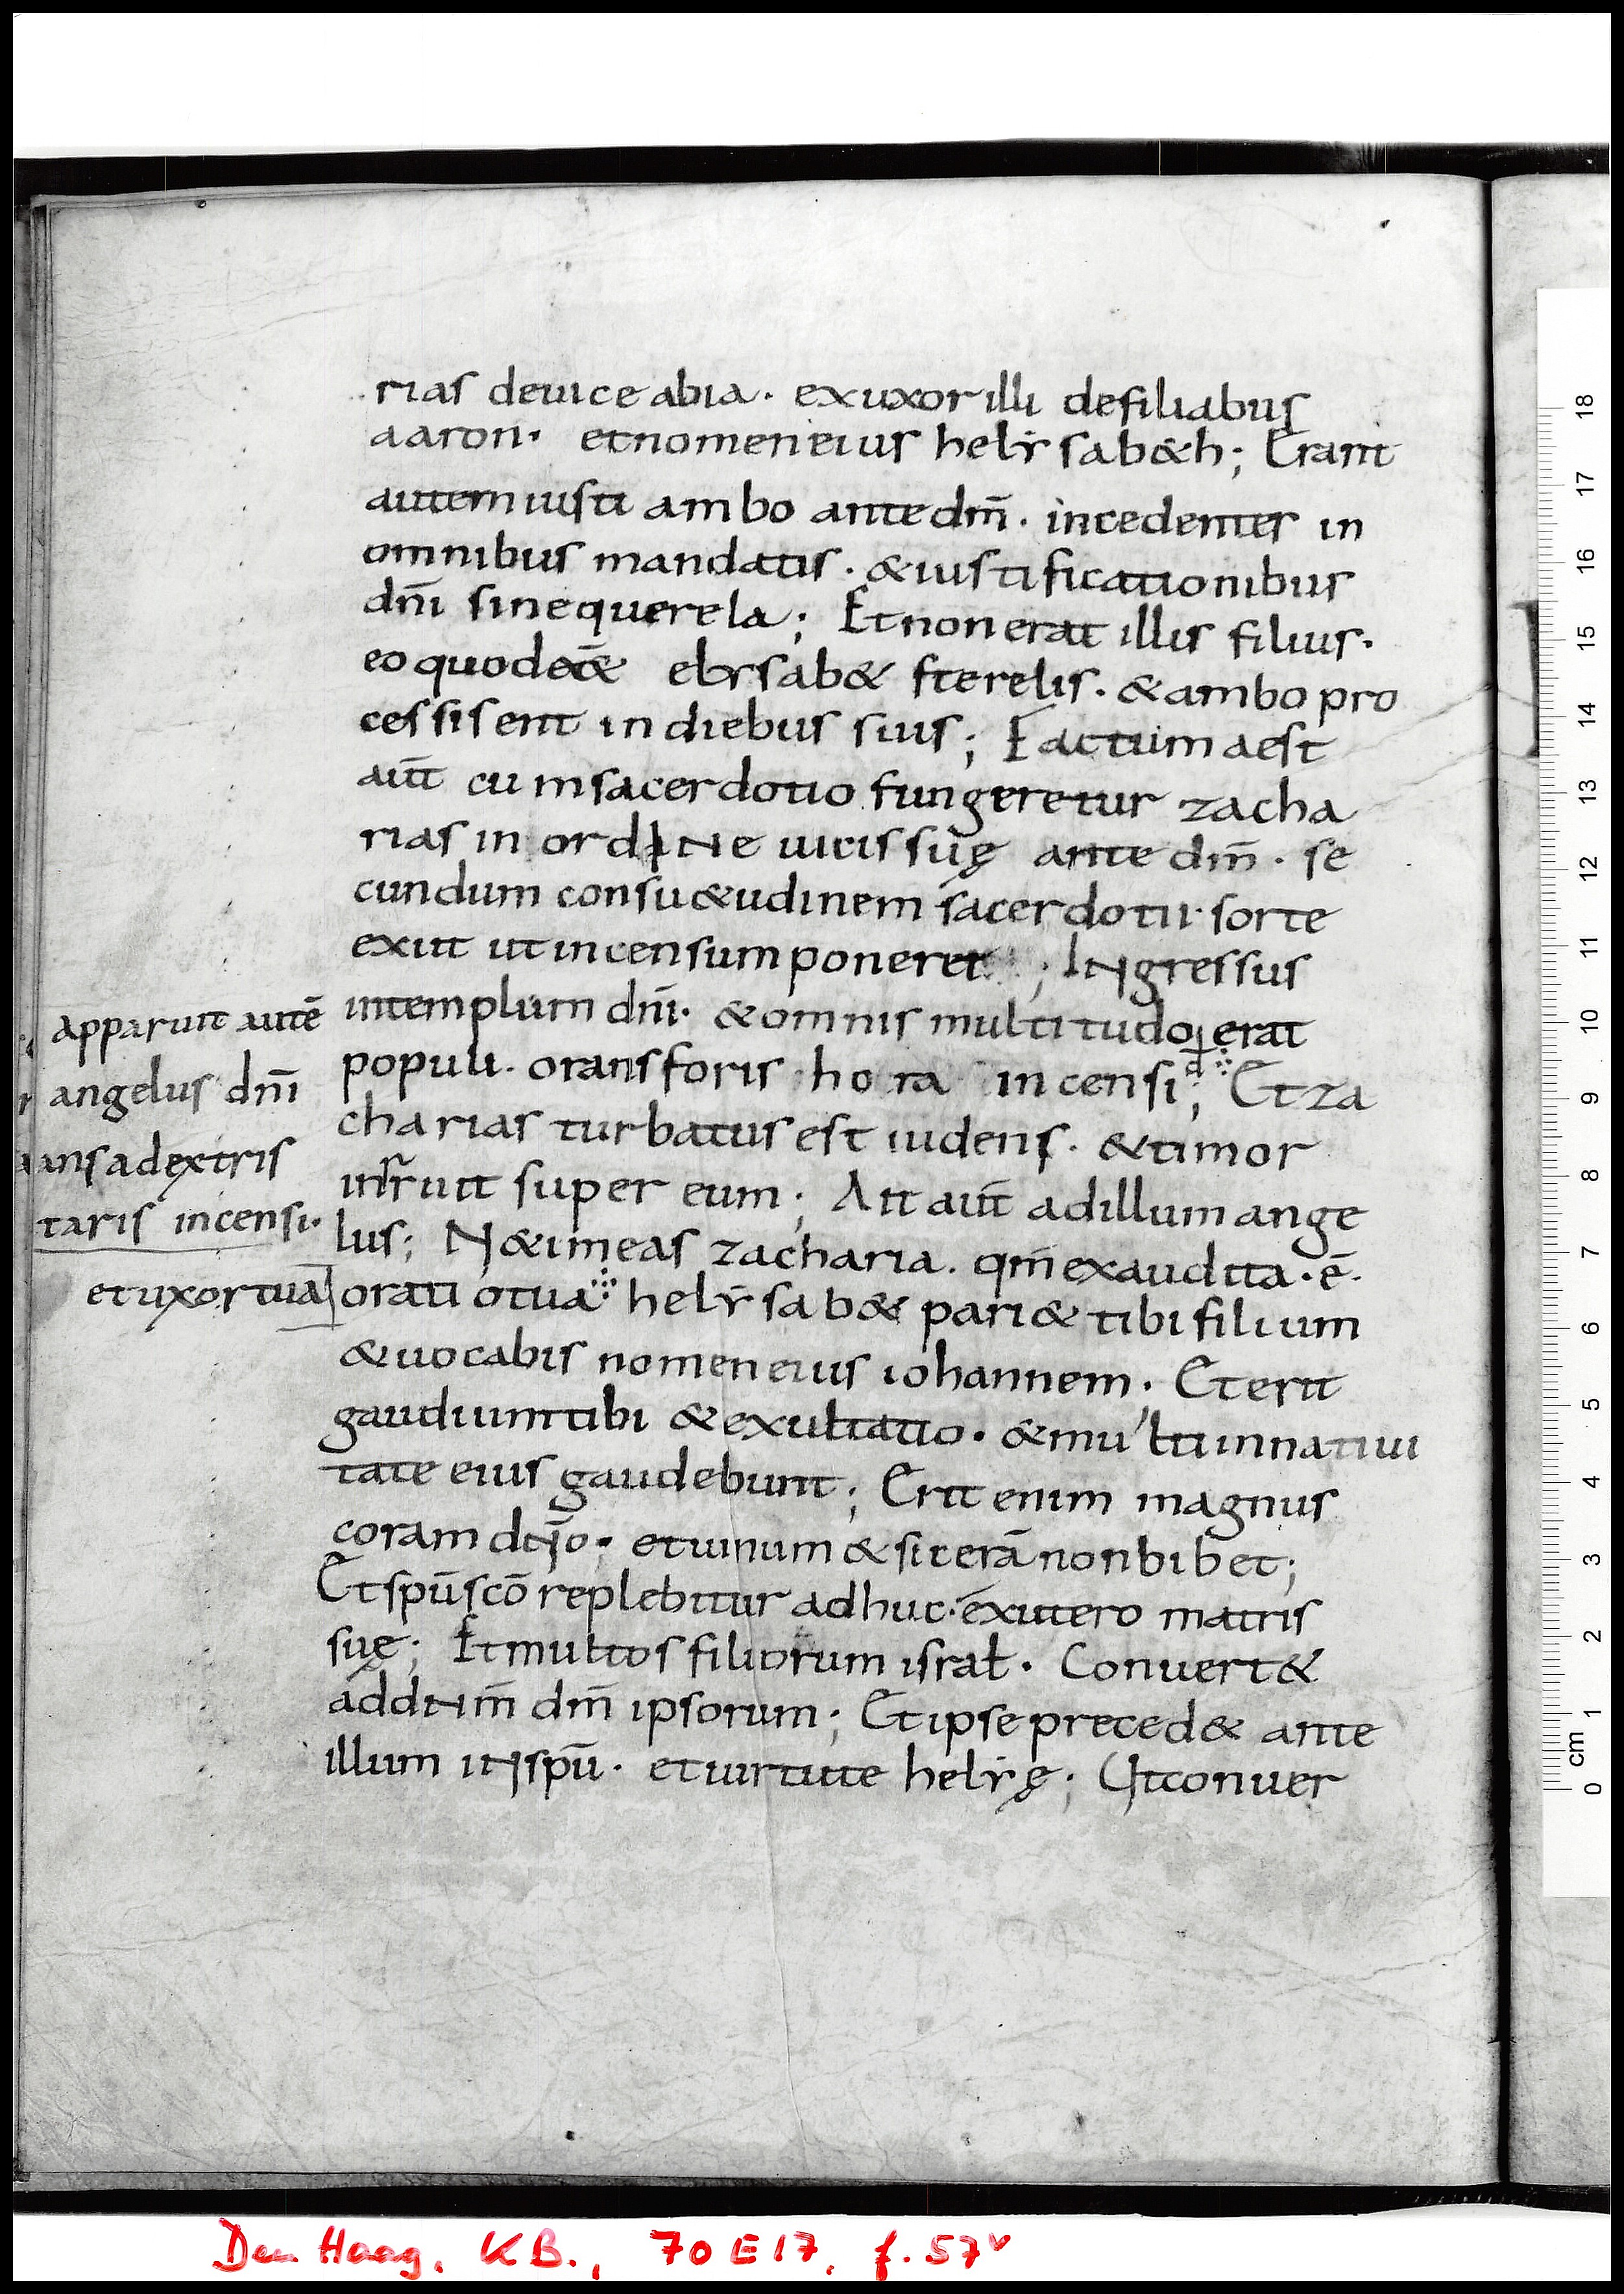 rias deuice abia. exuxor illi defiliabus
aaron. etnomen eius helysab&h; Erant
autem iusti ambo ante dm̄. incedenter in
omnibus mandatis. &iustificationibus
dn̄i sine querela; Et non erat illis filius.
eo quod elysab& sterelis. &ambo pro
cessisent in diebus suis; Factum aest
aut̄ cum sacerdotio fungeretur zacha
rias in ordine uicis suę ante dm̄. se
cundum consu&udinem sacerdotii. sorte
exiit ut incensum poneret; Ingressus
in templum dn̄i. &omnis multitudo erat
populi. orans foris hora incensi; Et za
charias turbatus est uidens. &timor
inruit super eum; Ait aut̄ ad illum ange
lus; N&imeas zacharia. qm̄ exaudita. ē.
oratio tua helysab& pari& tibi filium
&uocabis nomen eius iohannem. Et erit
gaudium tibi &exultatio. &multi in natiui
tate eius gaudebunt; Erit enim magnus
coram dn̄o. et uinum &sicerā non bibet;
Et spū scō replebitur adhuc. ex utero matris
suę; Et multos filiorum israł. Conuert&
ad dnm̄ dm̄ ipsorum; Et ipse preced& ante
illum in spū. et uirtute helyę; Ut conuer
apparuit autē
angelus dn̄i
ans adextris
taris incensi.
et uxor tua
Den Haag, KB., 70 E 17, f. 57v
18
17
16
15
14
13
12
11
10
9
8
7
6
5
4
3
2
1
cm
0